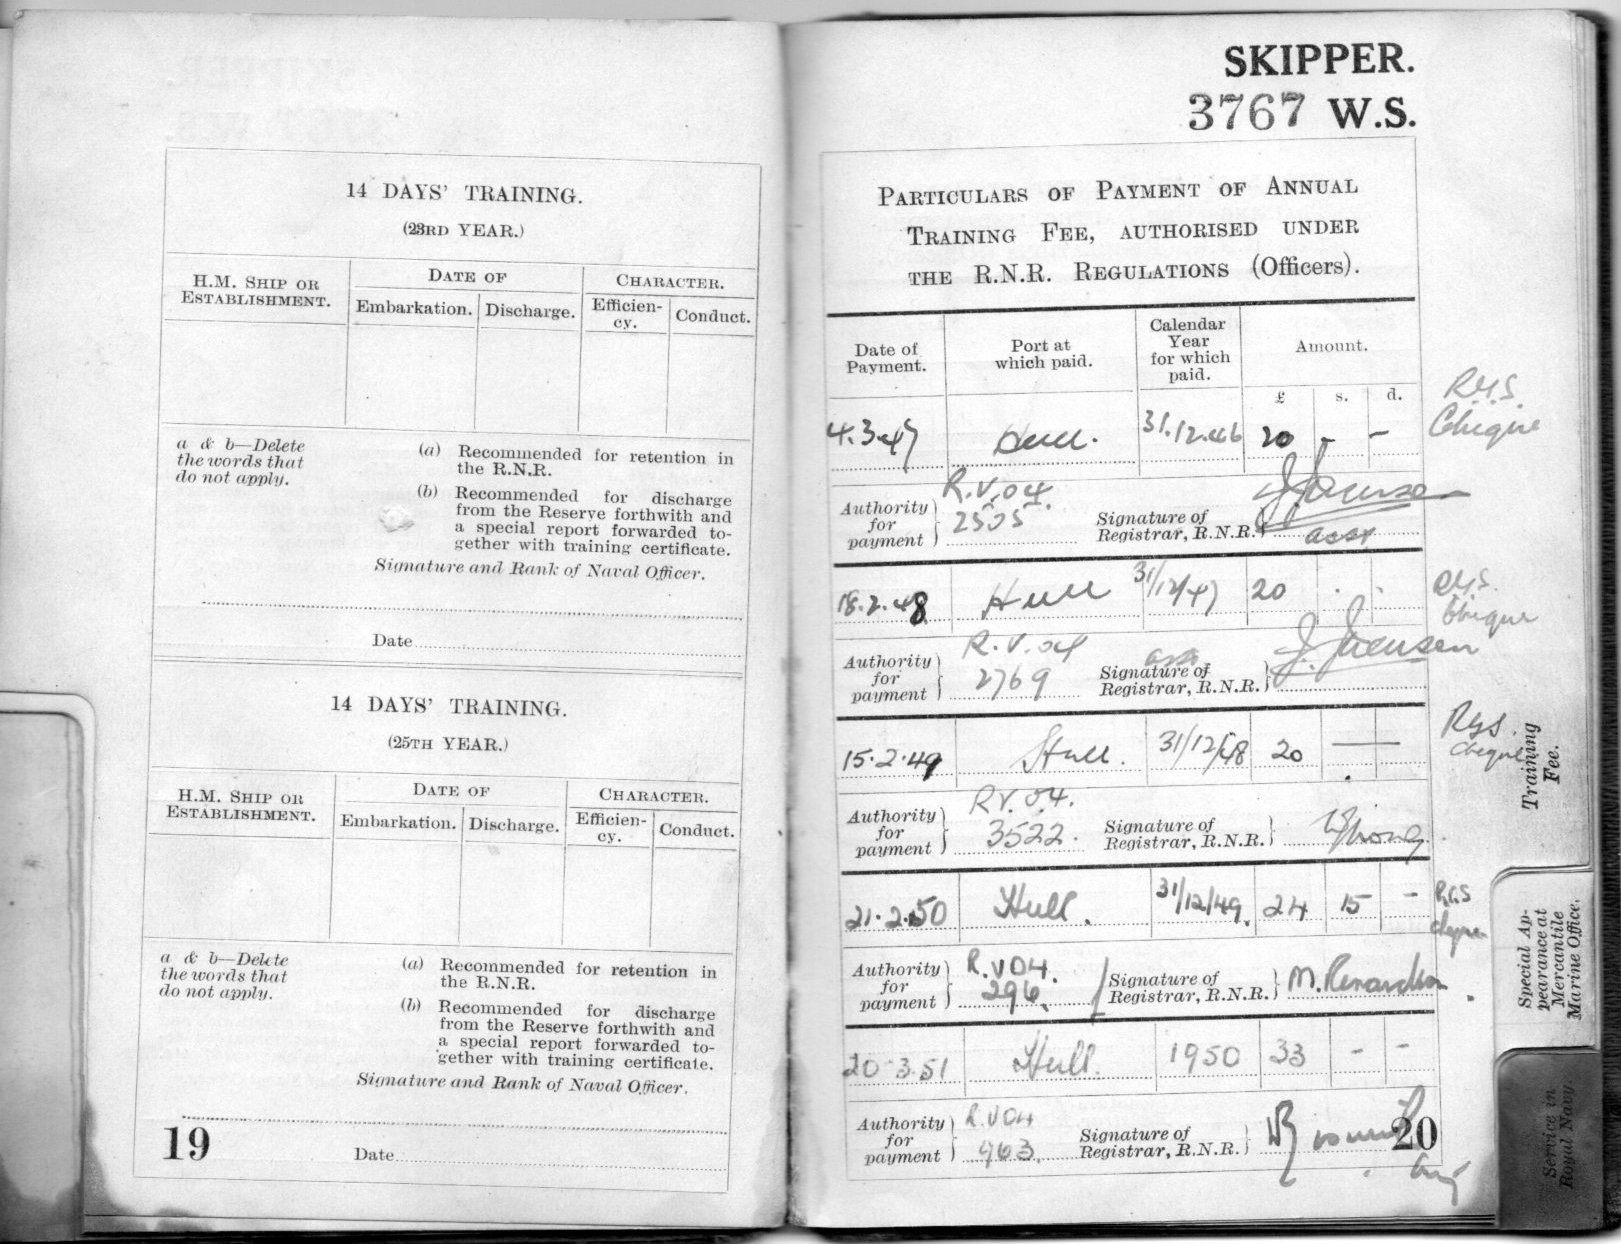 14 DAYS' TRAINING.
(23RD YEAR.)
H.M. SHIP OR
ESTABLISHMENT.
DATE OF
CHARACTER.
Embarkation.
Discharge.
Efficien-
cy.
Conduct.
a & b—Delete
the words that
do not apply.
(a) Recommended for retention in
the R.N.R.
(b) Recommended for discharge
from the Reserve forthwith and
a special report forwarded to-
gether with training certificate.
Signature and Rank of Naval Officer.
Date
14 DAYS' TRAINING.
(25TH YEAR.)
H.M. SHIP OR
ESTABLISHMENT.
DATE OF
CHARACTER.
Embarkation.
Discharge.
Efficien-
cy.
Conduct.
a & b—Delete
the words that
do not apply.
(a) Recommended for retention in
the R.N.R.
(b) Recommended for discharge
from the Reserve forthwith and
a special report forwarded to-
gether with training certificate.
Signature and Rank of Naval Officer.
19
Date
SKIPPER.
3767 W.S.
PARTICULARS OF PAYMENT OF ANNUAL
TRAINING FEE, AUTHORISED UNDER
THE R.N.R. REGULATIONS (Officers).
Date of
Payment.
Port at
which paid.
Calendar
Year
for which
paid.
Amount.
£ s. d.
4.3.47 Hull. 31.12.46 20 - -
Cheque
Authority
for
payment
R.V.04.
2505
Signature of
Registrar, R.N.R.
18.2.48 Hull 31/12/47 20 . .
Cheque
Authority
for
payment
R.V.04
2769
Signature of
Registrar, R.N.R.
15.2.49 Hull. 31/12/48 20 —
Cheque
Authority
for
payment
R.V.04.
3522.
Signature of
Registrar, R.N.R.
21.2.50 Hull. 31/12/49. 24 15 -
Cheque
Authority
for
payment
R.V04.
296.
Signature of
Registrar, R.N.R.
20-3.51 Hull. 1950 33 - -
Authority
for
payment
R.V04
963.
Signature of
Registrar, R.N.R.
20
Training
Fee.
Special Ap-
pearance at
Mercantile
Marine Office.
Service in
Royal Navy.